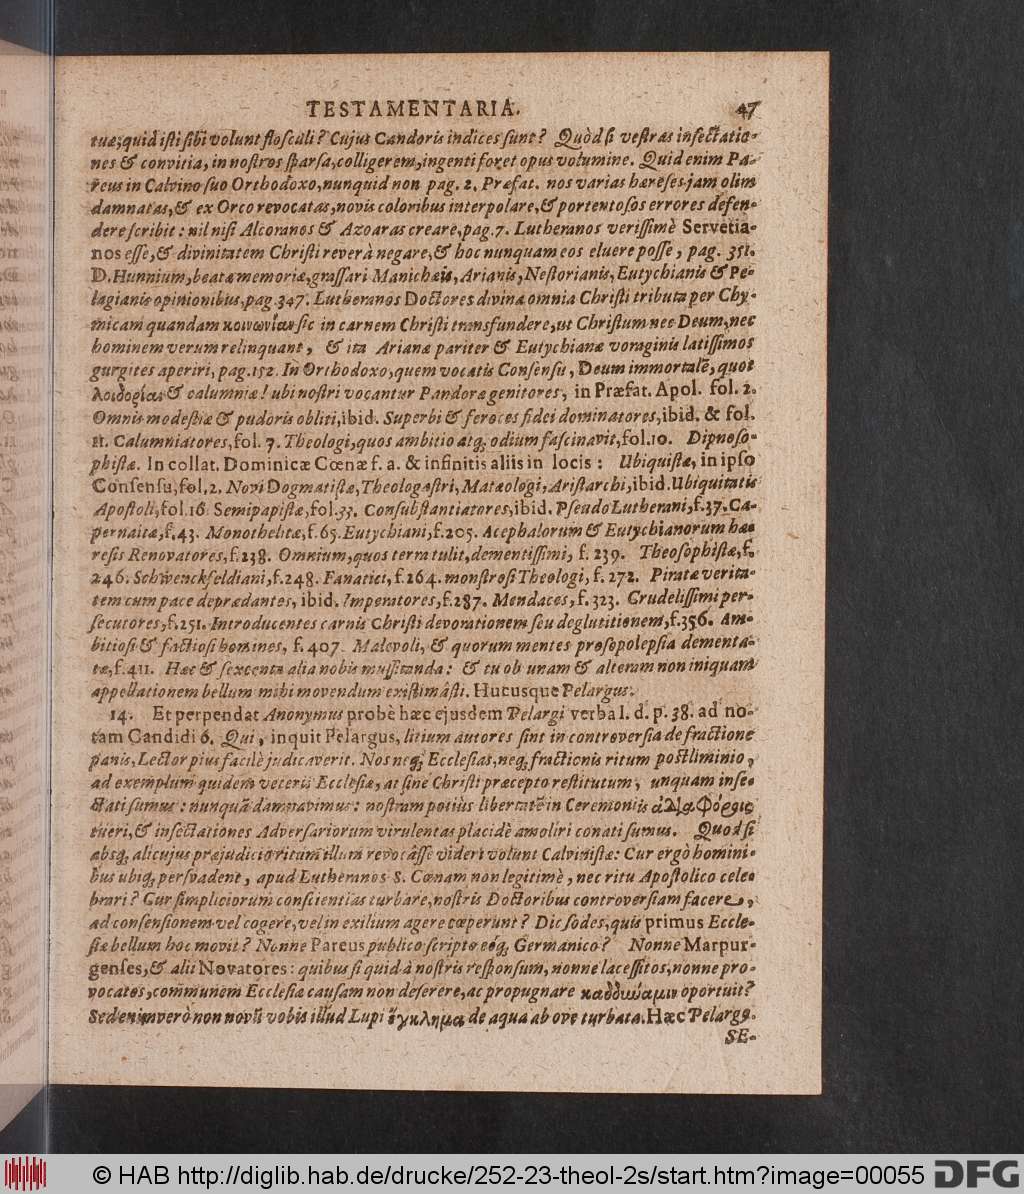 TESTAMENTARIA. 47
tuæ; quid isti sibi volunt flosculi? Cujus Candoris indices sunt? Quòd si vestras insectatio-
nes & convitia, in nostros sparsa, colligerem, ingenti foret opus volumine. Quid enim Pa-
reus in Calvino suo Orthodoxo, nunquid non pag. 2. Præfat. nos varias hæreses jam olim
damnatas, & ex Orco revocatas, novis coloribus interpolare, & portentosos errores defen-
dere scribit: nil nisi Alcoranos & Azoaras creare, pag. 7. Lutheranos verissimè Servetia-
nos esse, & divinitatem Christi reverà negare, & hoc nunquam eos eluere posse, pag. 351.
D. Hunnium, beatæ memoriæ, grassari Manichæis, Arianis, Nestorianis, Eutychianis & Pe-
lagianis opinionibus, pag. 347. Lutheranos Doctores divina omnia Christi tributa per Chy-
micam quandam κοινωνίαν sic in carnem Christi transfundere, ut Christum nec Deum, nec
hominem verum relinquant, & ita Arianæ pariter & Eutychianæ voraginis latissimos
gurgites aperiri, pag. 152. In Orthodoxo, quem vocatis Consensu, Deum immortalẽ, quot
λοιδορίαι & calumniæ! ubi nostri vocantur Pandoræ genitores, in Præfat. Apol. fol. 2.
Omnis modestiæ & pudoris obliti, ibid. Superbi & feroces fidei dominatores, ibid. & fol.
11. Calumniatores, fol. 7. Theologi, quos ambitio atq; odium fascinavit, fol. 10. Dipnoso-
phistæ. In collat. Dominicæ Cœnæ f. a. & infinitis aliis in locis: Ubiquistæ, in ipso
Consensu, fol. 2. Novi Dogmatistæ, Theologastri, Matæologi, Aristarchi, ibid. Ubiquitatis
Apostoli, fol. 16. Semipapistæ, fol. 33. Consubstantiatores, ibid. Pseudo Lutherani, f. 37. Ca-
pernaitæ, f. 43. Monothelitæ, f. 65. Eutychiani, f. 205. Acephalorum & Eutychianorum hæ-
resis Renovatores, f. 238. Omnium, quos terra tulit, dementissimi, f. 239. Theosophistæ, f.
246. Schwenckfeldiani, f. 248. Fanatici, f. 264. monstrosi Theologi, f. 272. Piratæ verita-
tem cum pace deprædantes, ibid. Imperatores, f. 287. Mendaces, f. 323. Crudelissimi per-
secutores, f. 251. Introducentes carnis Christi devorationem seu deglutitionem, f. 356. Am-
bitiosi & factiosi homines, f. 407. Malevoli, & quorum mentes prosopolepsia dementa-
tæ, f. 411. Hæc & sexcenta alia nobis mussitanda: & tu ob unam & alteram non iniquam
appellationem bellum mihi movendum existimâsti. Hucusque Pelargus.
14. Et perpendat Anonymus probè hæc ejusdem Pelargi verba l. d. p. 38. ad no-
tam Candidi 6. Qui, inquit Pelargus, litium autores sint in controversia de fractione
panis, Lector pius facilè judicaverit. Nos neq; Ecclesias, neq; fractionis ritum postliminio,
ad exemplum quidem veteris Ecclesiæ, at sine Christi præcepto restitutum, unquam inse-
ctati sumus: nunquã damnavimus: nostram potiùs libertatẽ in Ceremoniis ἀδιαφόροις
tueri, & insectationes Adversariorum virulentas placidè amoliri conati sumus. Quod si
absq; alicujus præjudicio ritum illum revocâsse videri volunt Calvinistæ: Cur ergò homini-
bus ubiq; persvadent, apud Lutheranos S. Cœnam non legitimè, nec ritu Apostolico cele-
brari? Cur simpliciorum conscientias turbare, nostris Doctoribus controversiam facere,
ad consensionem vel cogere, vel in exilium agere cœperunt? Dic sodes, quis primus Eccle-
siæ bellum hoc movit? Nonne Pareus publico scripto eóq; Germanico? Nonne Marpur-
genses, & alii Novatores: quibus si quid à nostris responsum, nonne lacessitos, nonne pro-
vocatos, communem Ecclesiæ causam non deserere, ac propugnare καθδύναμιν oportuit?
Sed enimverò non novũ vobis illud Lupi ἔγκλημα de aqua ab ove turbata. Hæc Pelargo.
SE-
© HAB http://diglib.hab.de/drucke/252-23-theol-2s/start.htm?image=00055 DFG